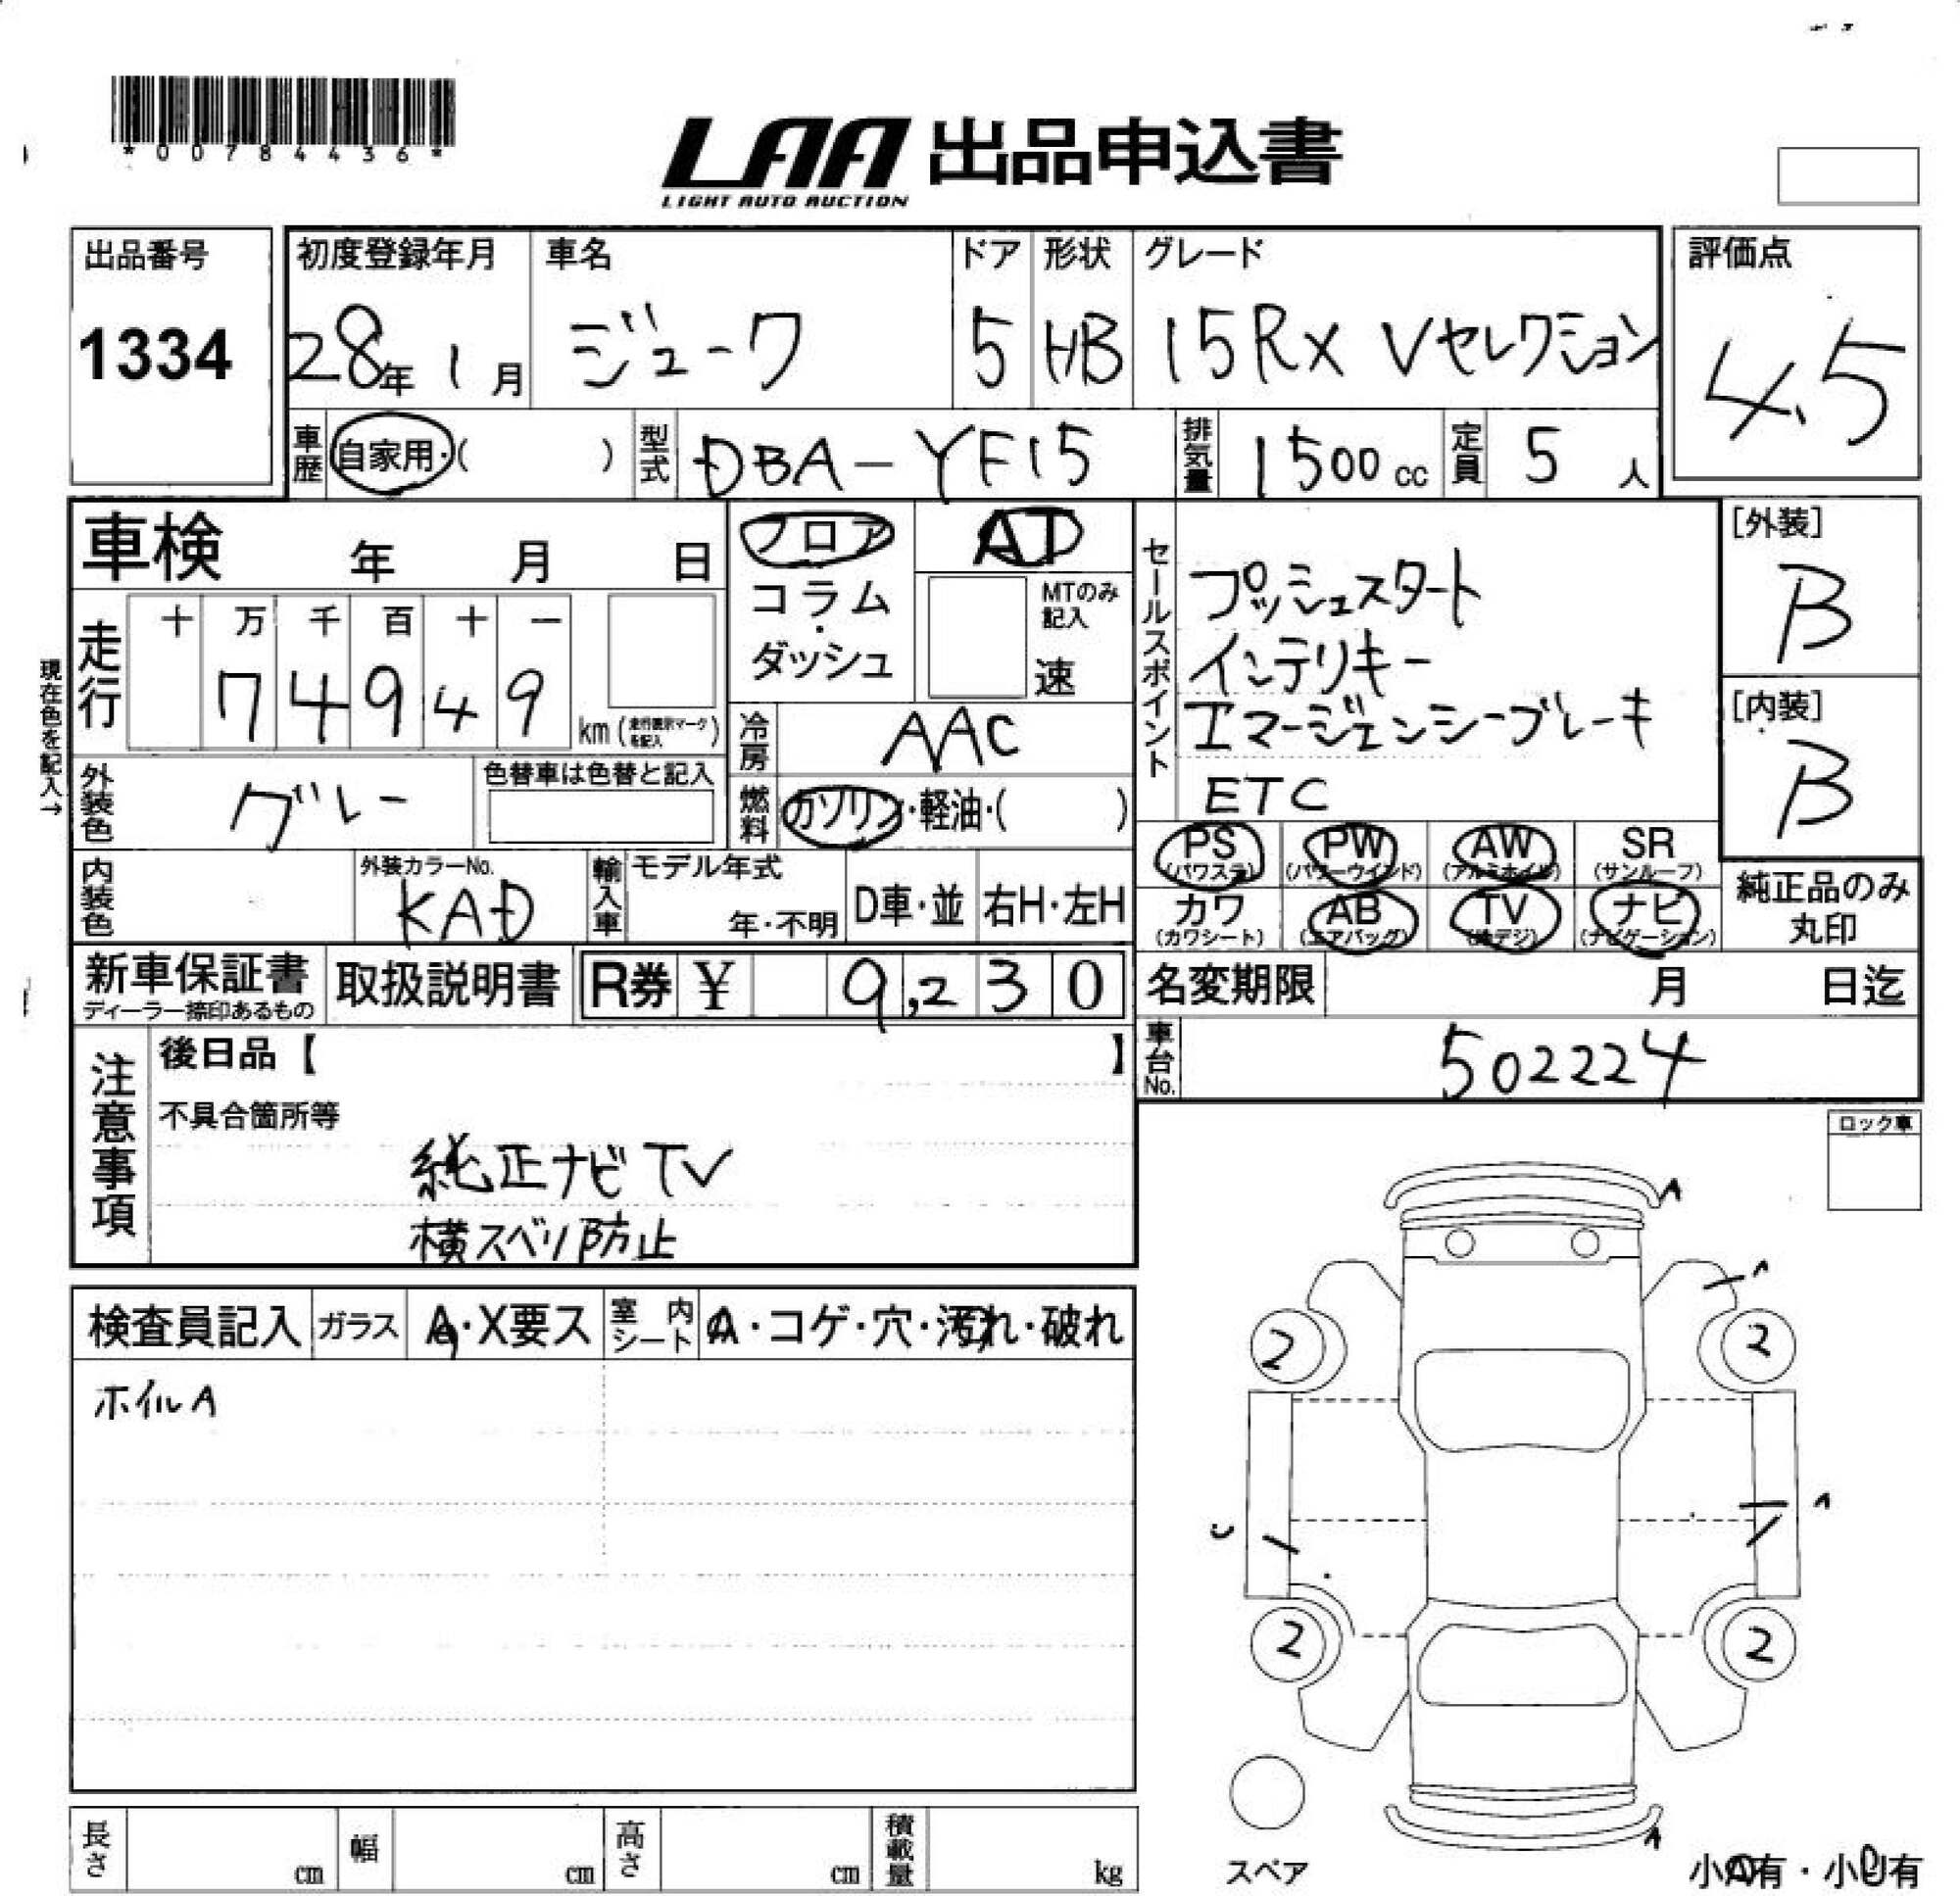 *00784436*
LAA 出品申込書
LIGHT AUTO AUCTION
出品番号
1334
初度登録年月
28年 1月
車名
ジューク
ドア
5
形状
HB
グレード
15RX Vセレクション
評価点
4.5
車歴 自家用・( )
型式 DBA-YF15
排気量 1500cc
定員 5人
車検 年 月 日
フロア
コラム・ダッシュ
AT
MTのみ記入
速
セールスポイント
プッシュスタート
インテリキー
エマージェンシーブレーキ
ETC
[外装]
B
[内装]
B
現在色を記入→
走行
十 万 千 百 十 一
7 4 9 4 9 km(走行表示マークを記入)
冷房 AAC
外装色 グレー
色替車は色替と記入
燃料 ガソリン・軽油・( )
PS (パワステ) PW (パワーウインド) AW (アルミホイル) SR (サンルーフ)
カワ (カワシート) AB (エアバッグ) TV (地デジ) ナビ (ナビゲーション)
純正品のみ丸印
内装色
外装カラーNo.
KAD
輸入車 モデル年式 年・不明 D車・並 右H・左H
新車保証書
ディーラー捺印あるもの
取扱説明書
R券 ¥ 9,230
名変期限 月 日迄
車台No. 502224
注意事項
後日品【 】
不具合箇所等
純正ナビTV
横スベリ防止
ロック車
検査員記入 ガラス A・X要ス 室内シート A・コゲ・穴・汚れ・破れ
ホイルA
A
A
2 2
A
C
2 2
A
スペア
小A有・小U有
長さ cm 幅 cm 高さ cm 積載量 kg